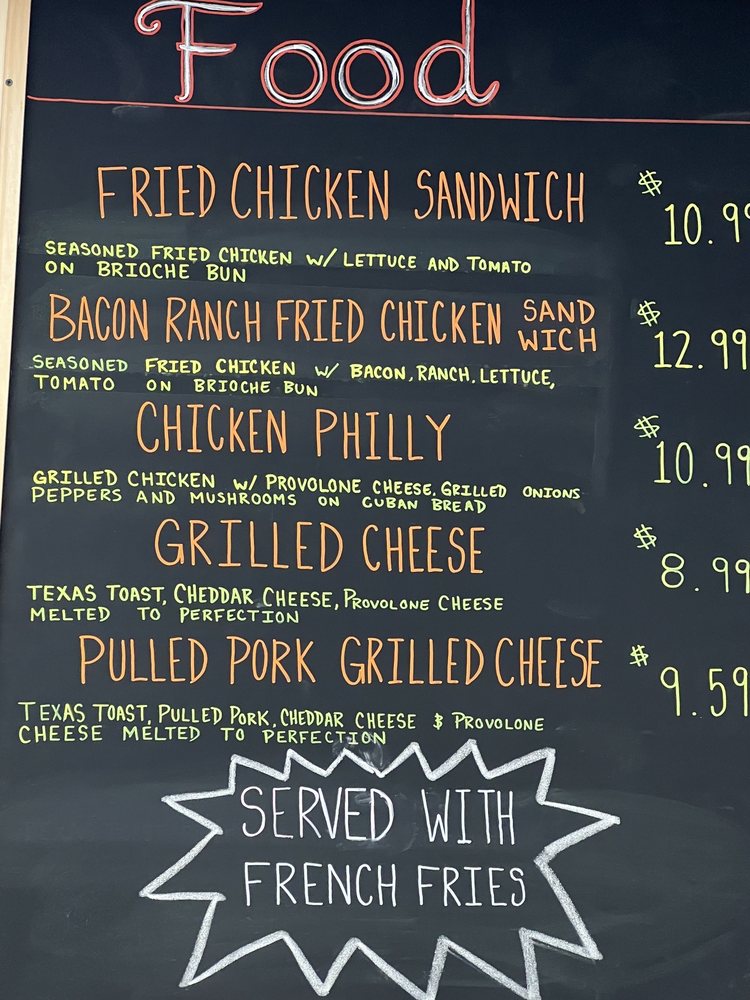 Food
FRIED CHICKEN SANDWICH $ 10.99
SEASONED FRIED CHICKEN W/ LETTUCE AND TOMATO
ON BRIOCHE BUN
BACON RANCH FRIED CHICKEN SAND WICH $ 12.99
SEASONED FRIED CHICKEN W/ BACON, RANCH, LETTUCE,
TOMATO ON BRIOCHE BUN
CHICKEN PHILLY $ 10.99
GRILLED CHICKEN W/ PROVOLONE CHEESE, GRILLED ONIONS
PEPPERS AND MUSHROOMS ON CUBAN BREAD
GRILLED CHEESE $ 8.99
TEXAS TOAST, CHEDDAR CHEESE, PROVOLONE CHEESE
MELTED TO PERFECTION
PULLED PORK GRILLED CHEESE $ 9.59
TEXAS TOAST, PULLED PORK, CHEDDAR CHEESE $ PROVOLONE
CHEESE MELTED TO PERFECTION
SERVED WITH
FRENCH FRIES